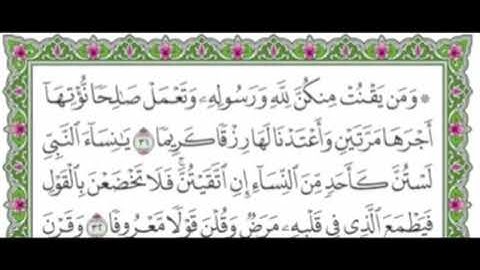 ۞ وَمَن يَقْنُتْ مِنكُنَّ لِلَّهِ وَرَسُولِهِۦ وَتَعْمَلْ صَٰلِحًا نُّؤْتِهَآ
أَجْرَهَا مَرَّتَيْنِ وَأَعْتَدْنَا لَهَا رِزْقًا كَرِيمًا ٣١ يَٰنِسَآءَ ٱلنَّبِىِّ
لَسْتُنَّ كَأَحَدٍ مِّنَ ٱلنِّسَآءِ إِنِ ٱتَّقَيْتُنَّ ۚ فَلَا تَخْضَعْنَ بِٱلْقَوْلِ
فَيَطْمَعَ ٱلَّذِى فِى قَلْبِهِۦ مَرَضٌ وَقُلْنَ قَوْلًا مَّعْرُوفًا ٣٢ وَقَرْنَ